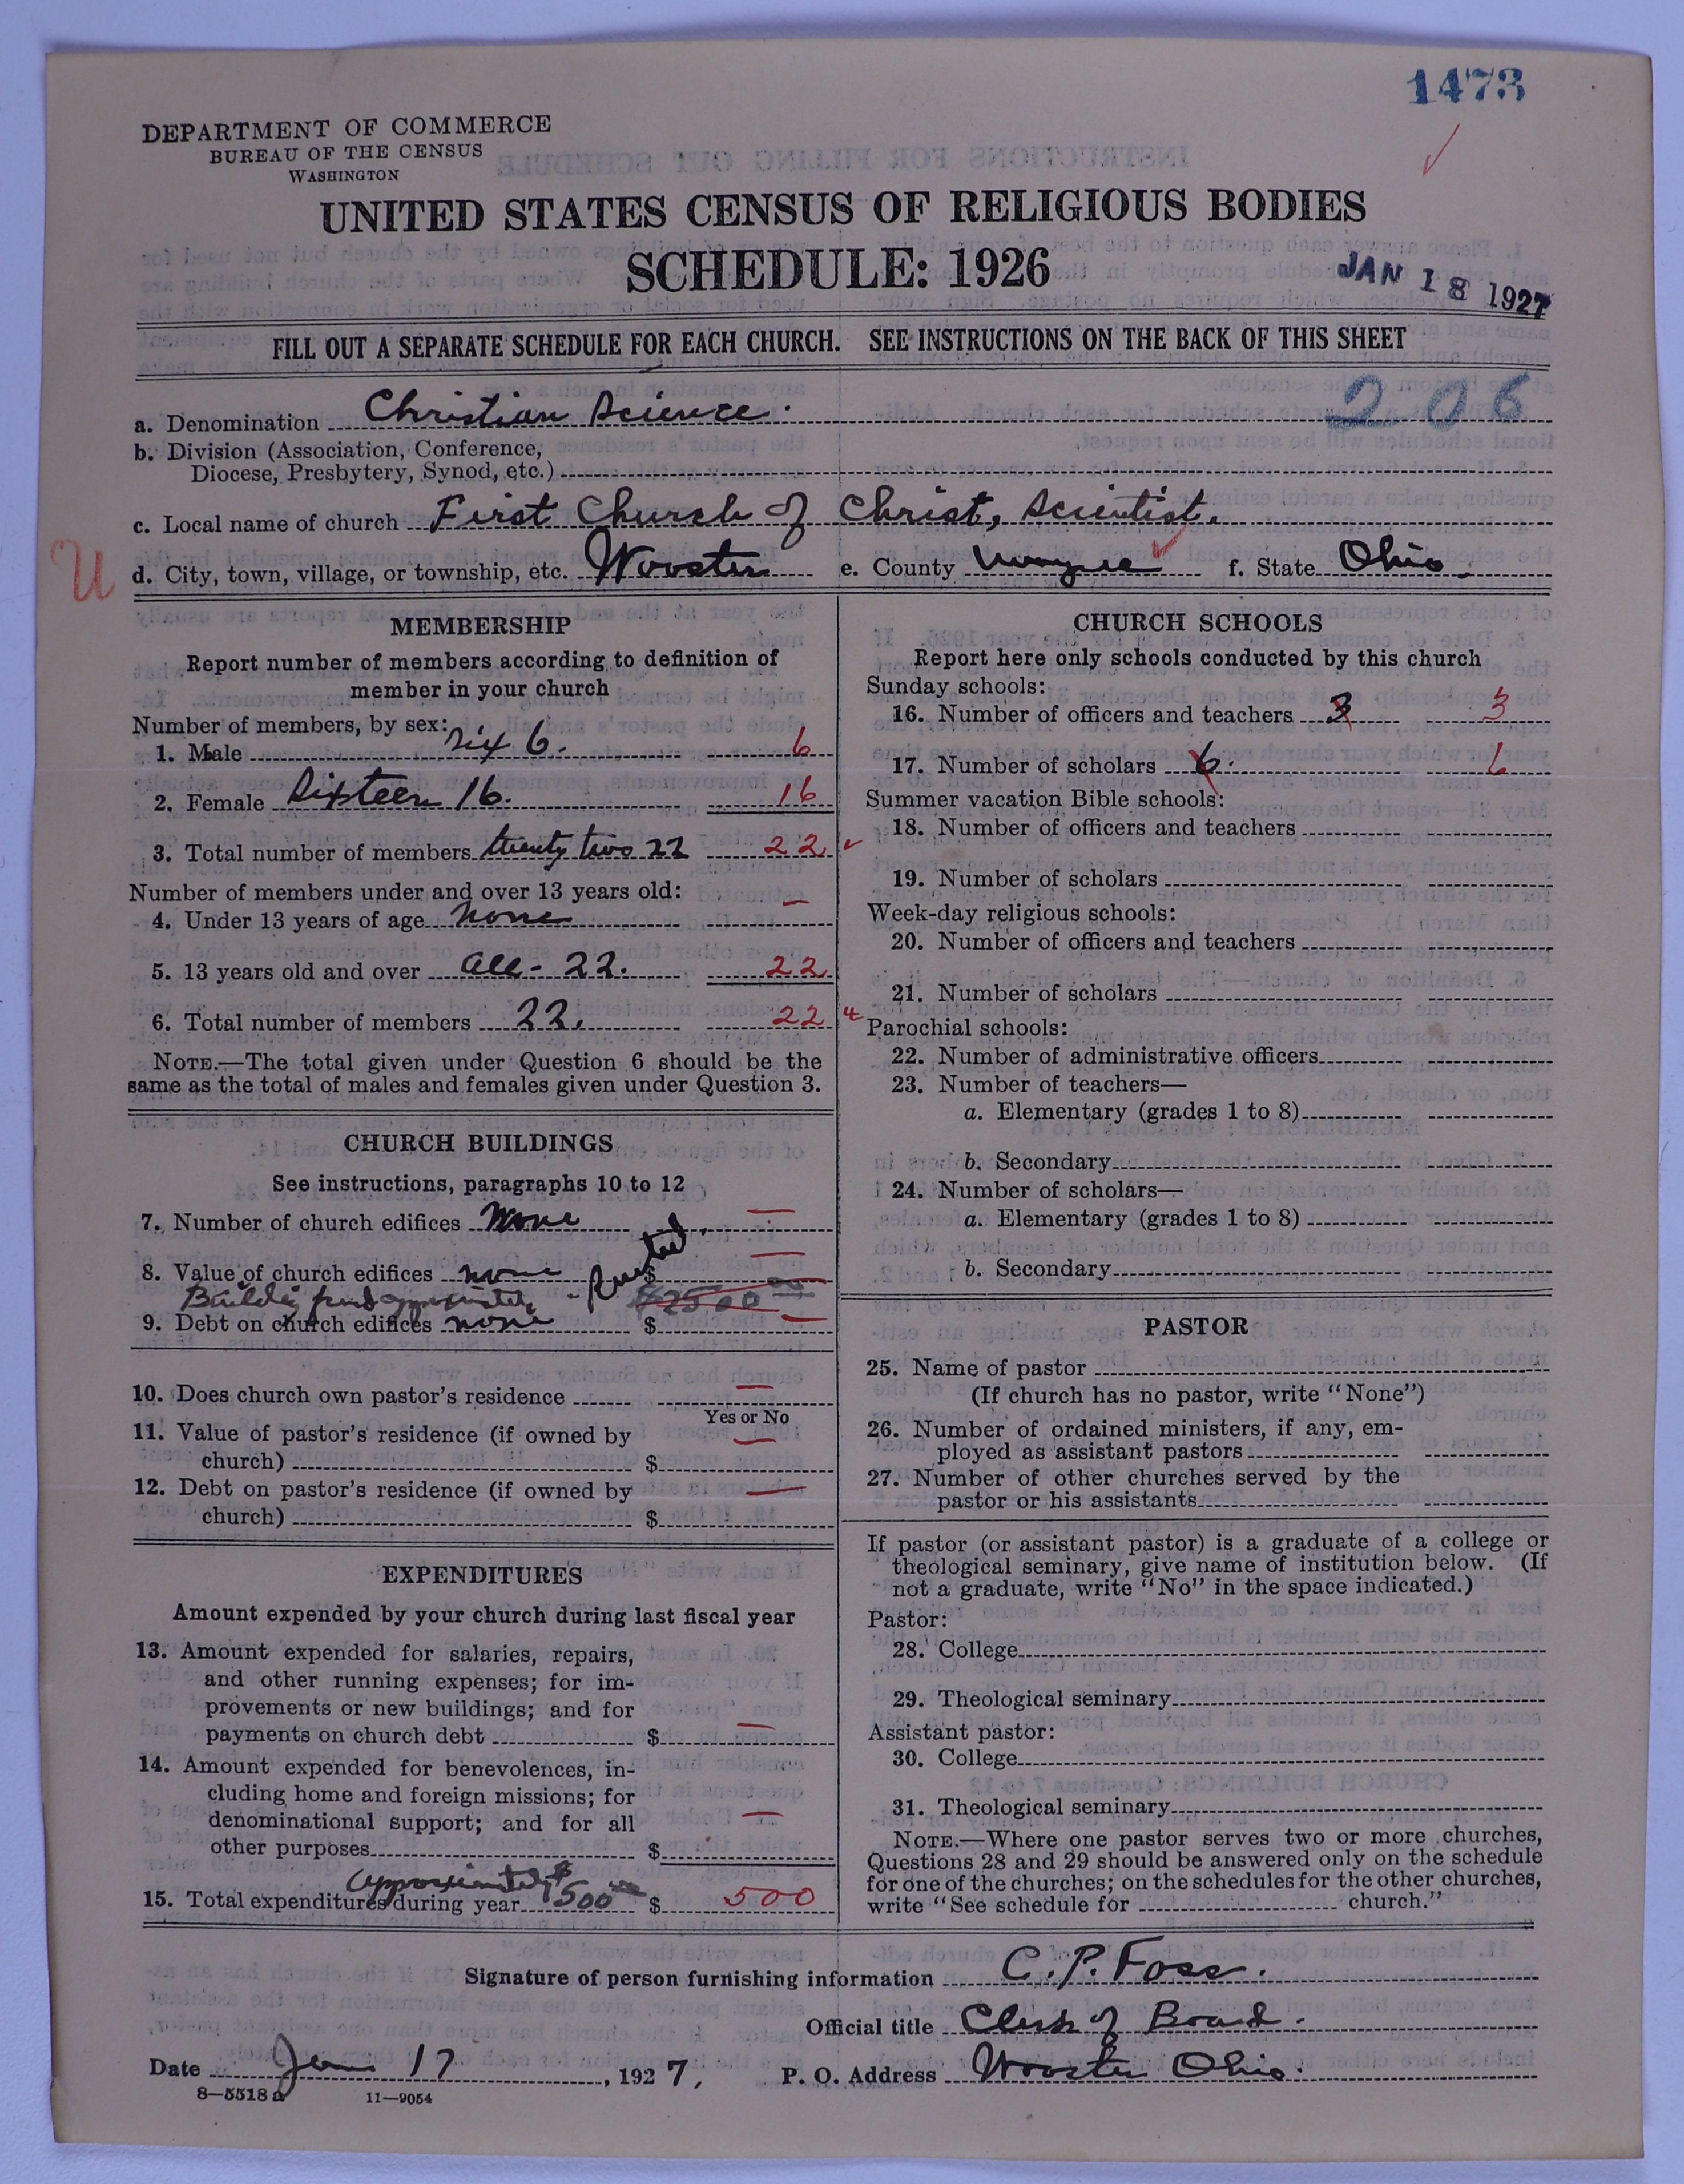 1473
DEPARTMENT OF COMMERCE
BUREAU OF THE CENSUS
WASHINGTON
UNITED STATES CENSUS OF RELIGIOUS BODIES
SCHEDULE: 1926
JAN 18 1927
FILL OUT A SEPARATE SCHEDULE FOR EACH CHURCH. SEE INSTRUCTIONS ON THE BACK OF THIS SHEET
206
a. Denomination Christian Science.
b. Division (Association, Conference,
Diocese, Presbytery, Synod, etc.)
c. Local name of church First Church of Christ, Scientist.
U
d. City, town, village, or township, etc. Wooster e. County Wayne f. State Ohio.
MEMBERSHIP
Report number of members according to definition of
member in your church
Number of members, by sex:
1. Male Six 6. 6
2. Female Sixteen 16. 16
3. Total number of members twenty two 22 22
Number of members under and over 13 years old:
4. Under 13 years of age none —
5. 13 years old and over all - 22. 22
6. Total number of members 22. 22
NOTE.—The total given under Question 6 should be the
same as the total of males and females given under Question 3.
CHURCH BUILDINGS
See instructions, paragraphs 10 to 12
7. Number of church edifices none —
8. Value of church edifices none - Rented. $ —
Building fund approximately $2500
9. Debt on church edifices none $ —
10. Does church own pastor's residence —
Yes or No
11. Value of pastor's residence (if owned by
church) $ —
12. Debt on pastor's residence (if owned by
church) $ —
EXPENDITURES
Amount expended by your church during last fiscal year
13. Amount expended for salaries, repairs,
and other running expenses; for im-
provements or new buildings; and for
payments on church debt $ —
14. Amount expended for benevolences, in-
cluding home and foreign missions; for
denominational support; and for all
other purposes $ —
approximately $
15. Total expenditures during year 500 $ 500
CHURCH SCHOOLS
Report here only schools conducted by this church
Sunday schools:
16. Number of officers and teachers 3 3
17. Number of scholars 6. 6
Summer vacation Bible schools:
18. Number of officers and teachers
19. Number of scholars
Week-day religious schools:
20. Number of officers and teachers
21. Number of scholars
Parochial schools:
22. Number of administrative officers
23. Number of teachers—
a. Elementary (grades 1 to 8)
b. Secondary
24. Number of scholars—
a. Elementary (grades 1 to 8)
b. Secondary
PASTOR
25. Name of pastor
(If church has no pastor, write "None")
26. Number of ordained ministers, if any, em-
ployed as assistant pastors
27. Number of other churches served by the
pastor or his assistants
If pastor (or assistant pastor) is a graduate of a college or
theological seminary, give name of institution below. (If
not a graduate, write "No" in the space indicated.)
Pastor:
28. College
29. Theological seminary
Assistant pastor:
30. College
31. Theological seminary
NOTE.—Where one pastor serves two or more churches,
Questions 28 and 29 should be answered only on the schedule
for one of the churches; on the schedules for the other churches,
write "See schedule for church."
Signature of person furnishing information C. P. Foss.
Official title Clerk of Board.
Date Jan 17, 1927, P. O. Address Wooster Ohio.
8—5518 a 11—9054